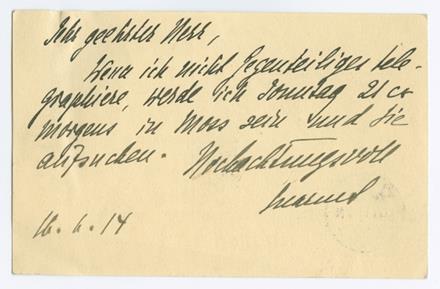 Sehr geehrter Herr,
Wenn ich nicht Gegenteiliges tele-
graphiere, werde ich Sonntag 21 cr
morgens in Moss sein und Sie
aufsuchen. Hochachtungsvoll
16. 6. 14